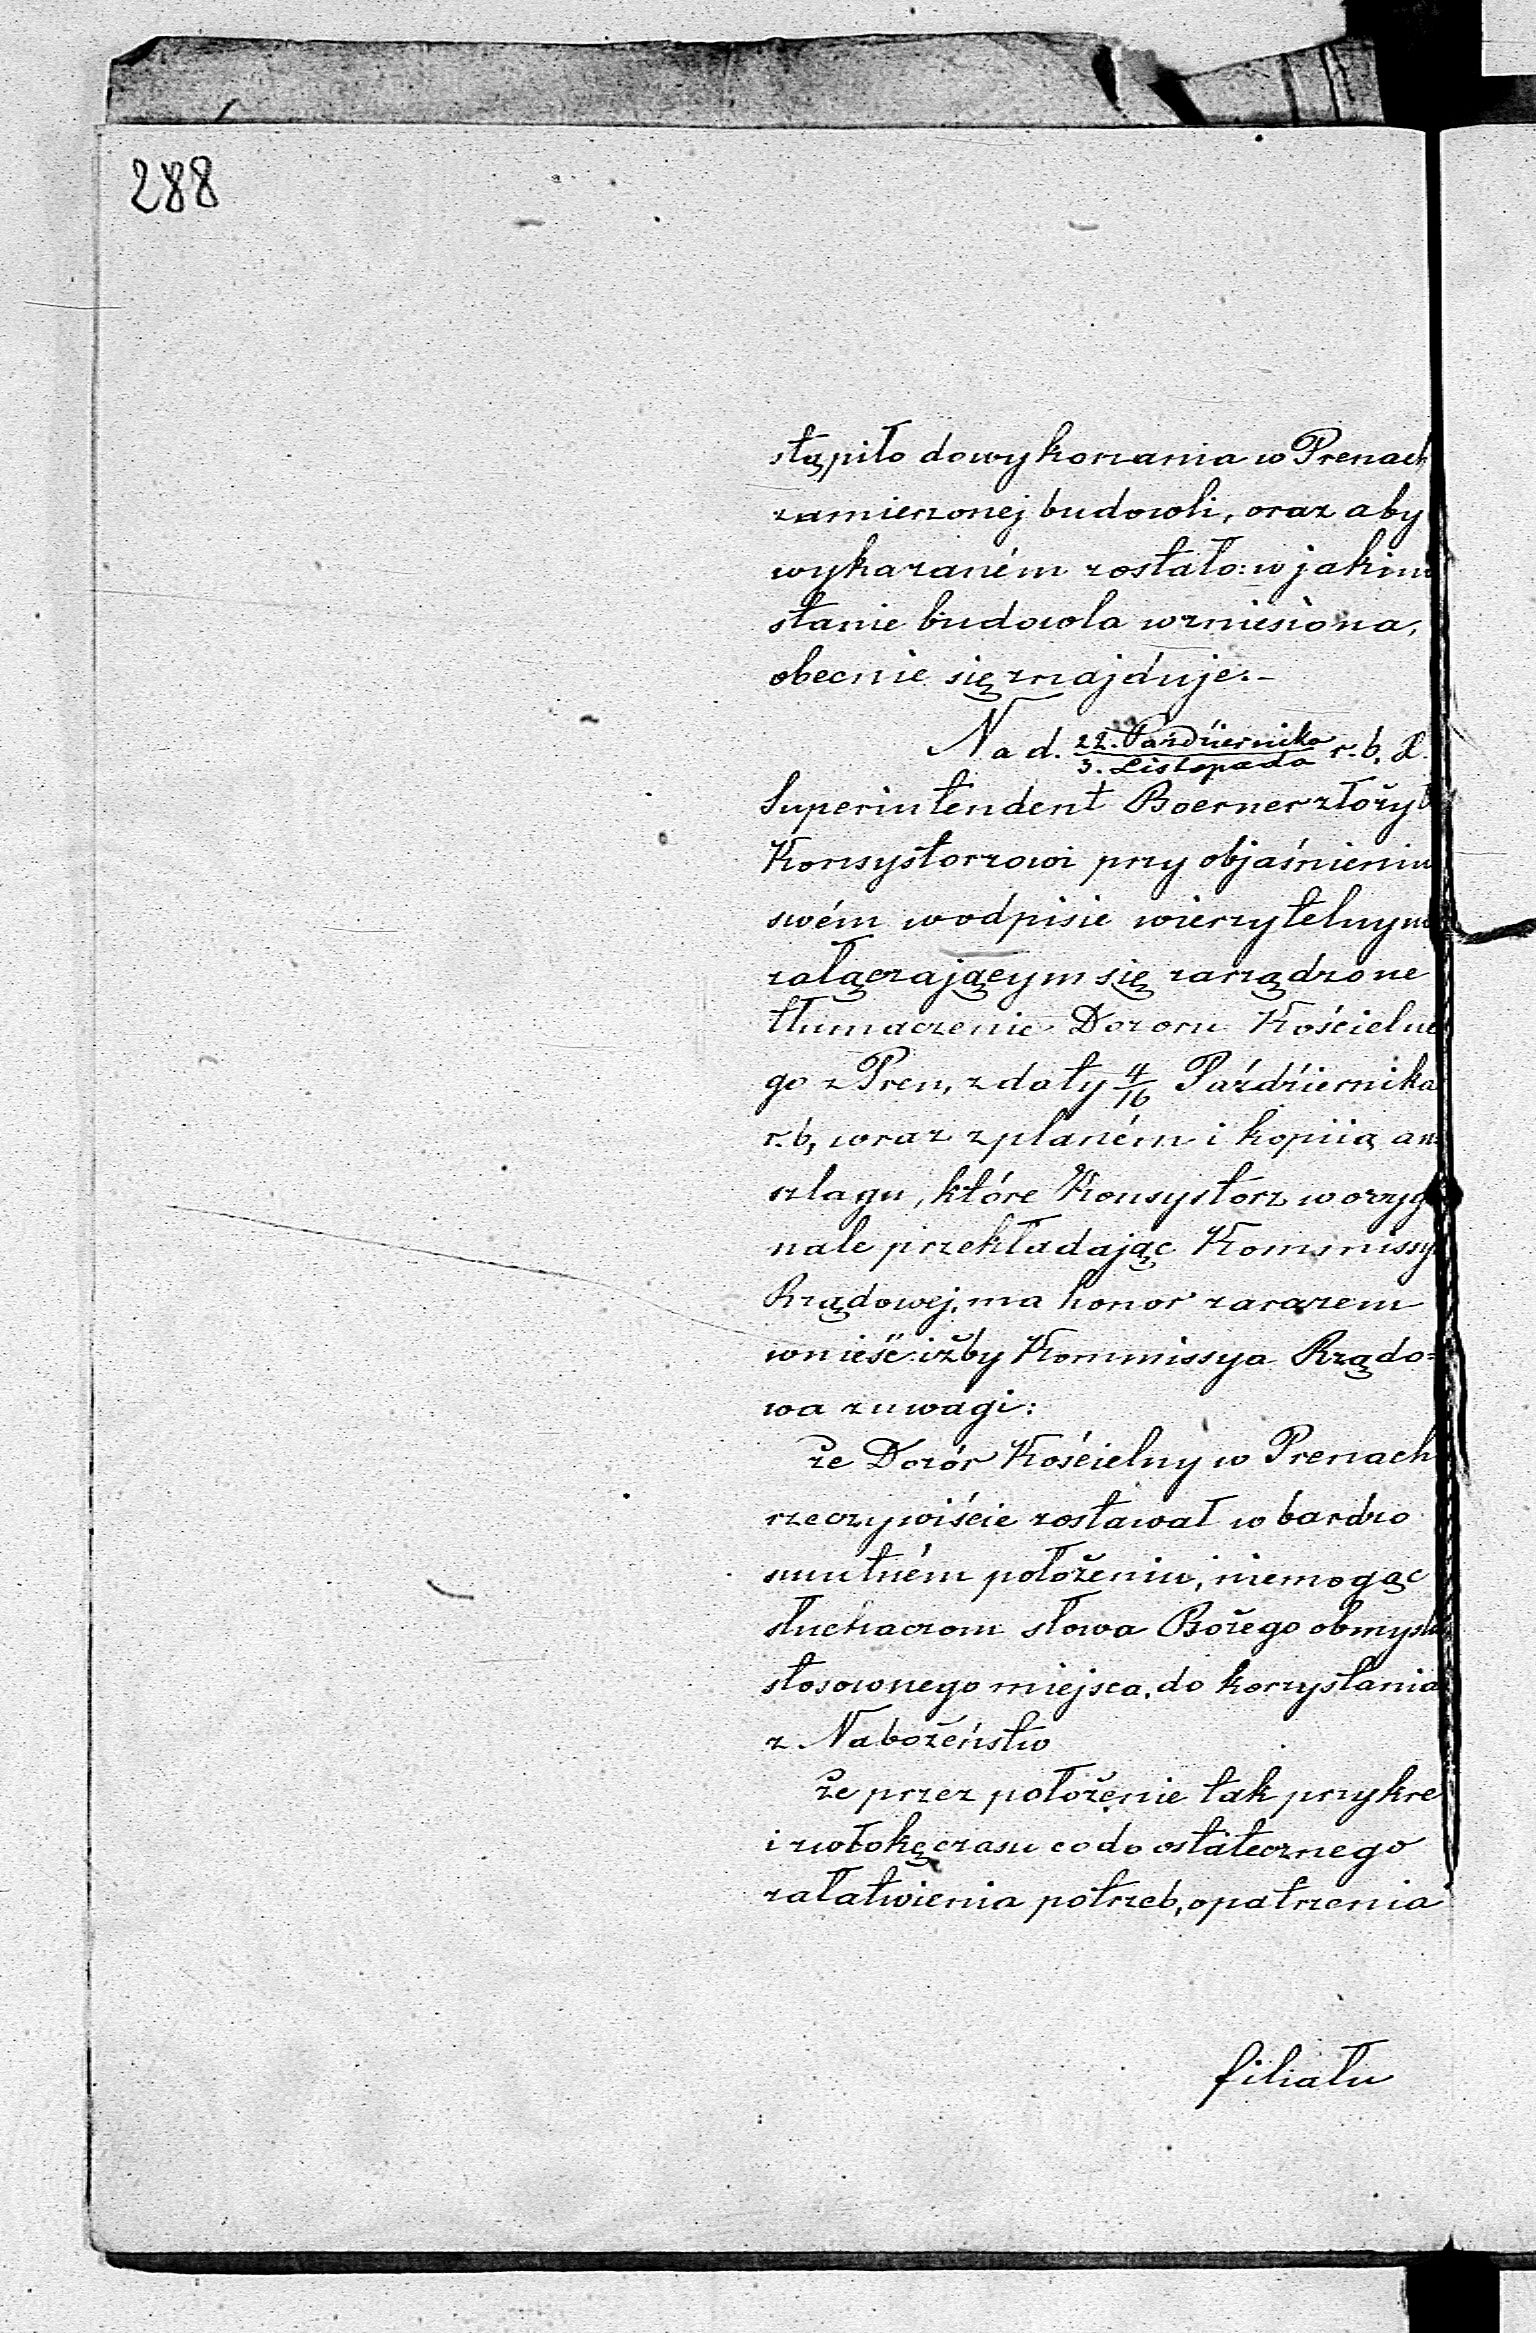 288
stąpiło do wykonania w Prenach
zamierzonej budowli, oraz aby
wykazaném zostało: w jakim
stanie budowla wzniesiona,
obecnie się znajduje.–
Na d. 22. Październiko r. b. X.
3. Listopada
Superintendent Boerner złożył
Konsystorzowi przy objaśnieniu
swém w odpisie wierzytelnym
załączającym się zarządzone
tłumaczenie Dozoru Kościelne
go z Pren, z daty 4/16 Października
r. b, wraz z planém i kopiią an
szlagu, które Konsystorz w oryg
nale przekładając Kommissy
Rządowej, ma honor zarazem
wnieść: iżby Kommissya Rządo=
wa z uwagi:
że Dozór Kościelny w Prenach
rzeczywiście zostawał w bardzo
smutném położeniu, niemogąc
słuchaczom słowa Bożego obmyśl
stosownego miejsca, do korzystania
z Nabożeństw
że przez położenie tak przykre
i zwłokę czasu co do ostatecznego
załatwienia potrzeb, opatrzenia
filiału